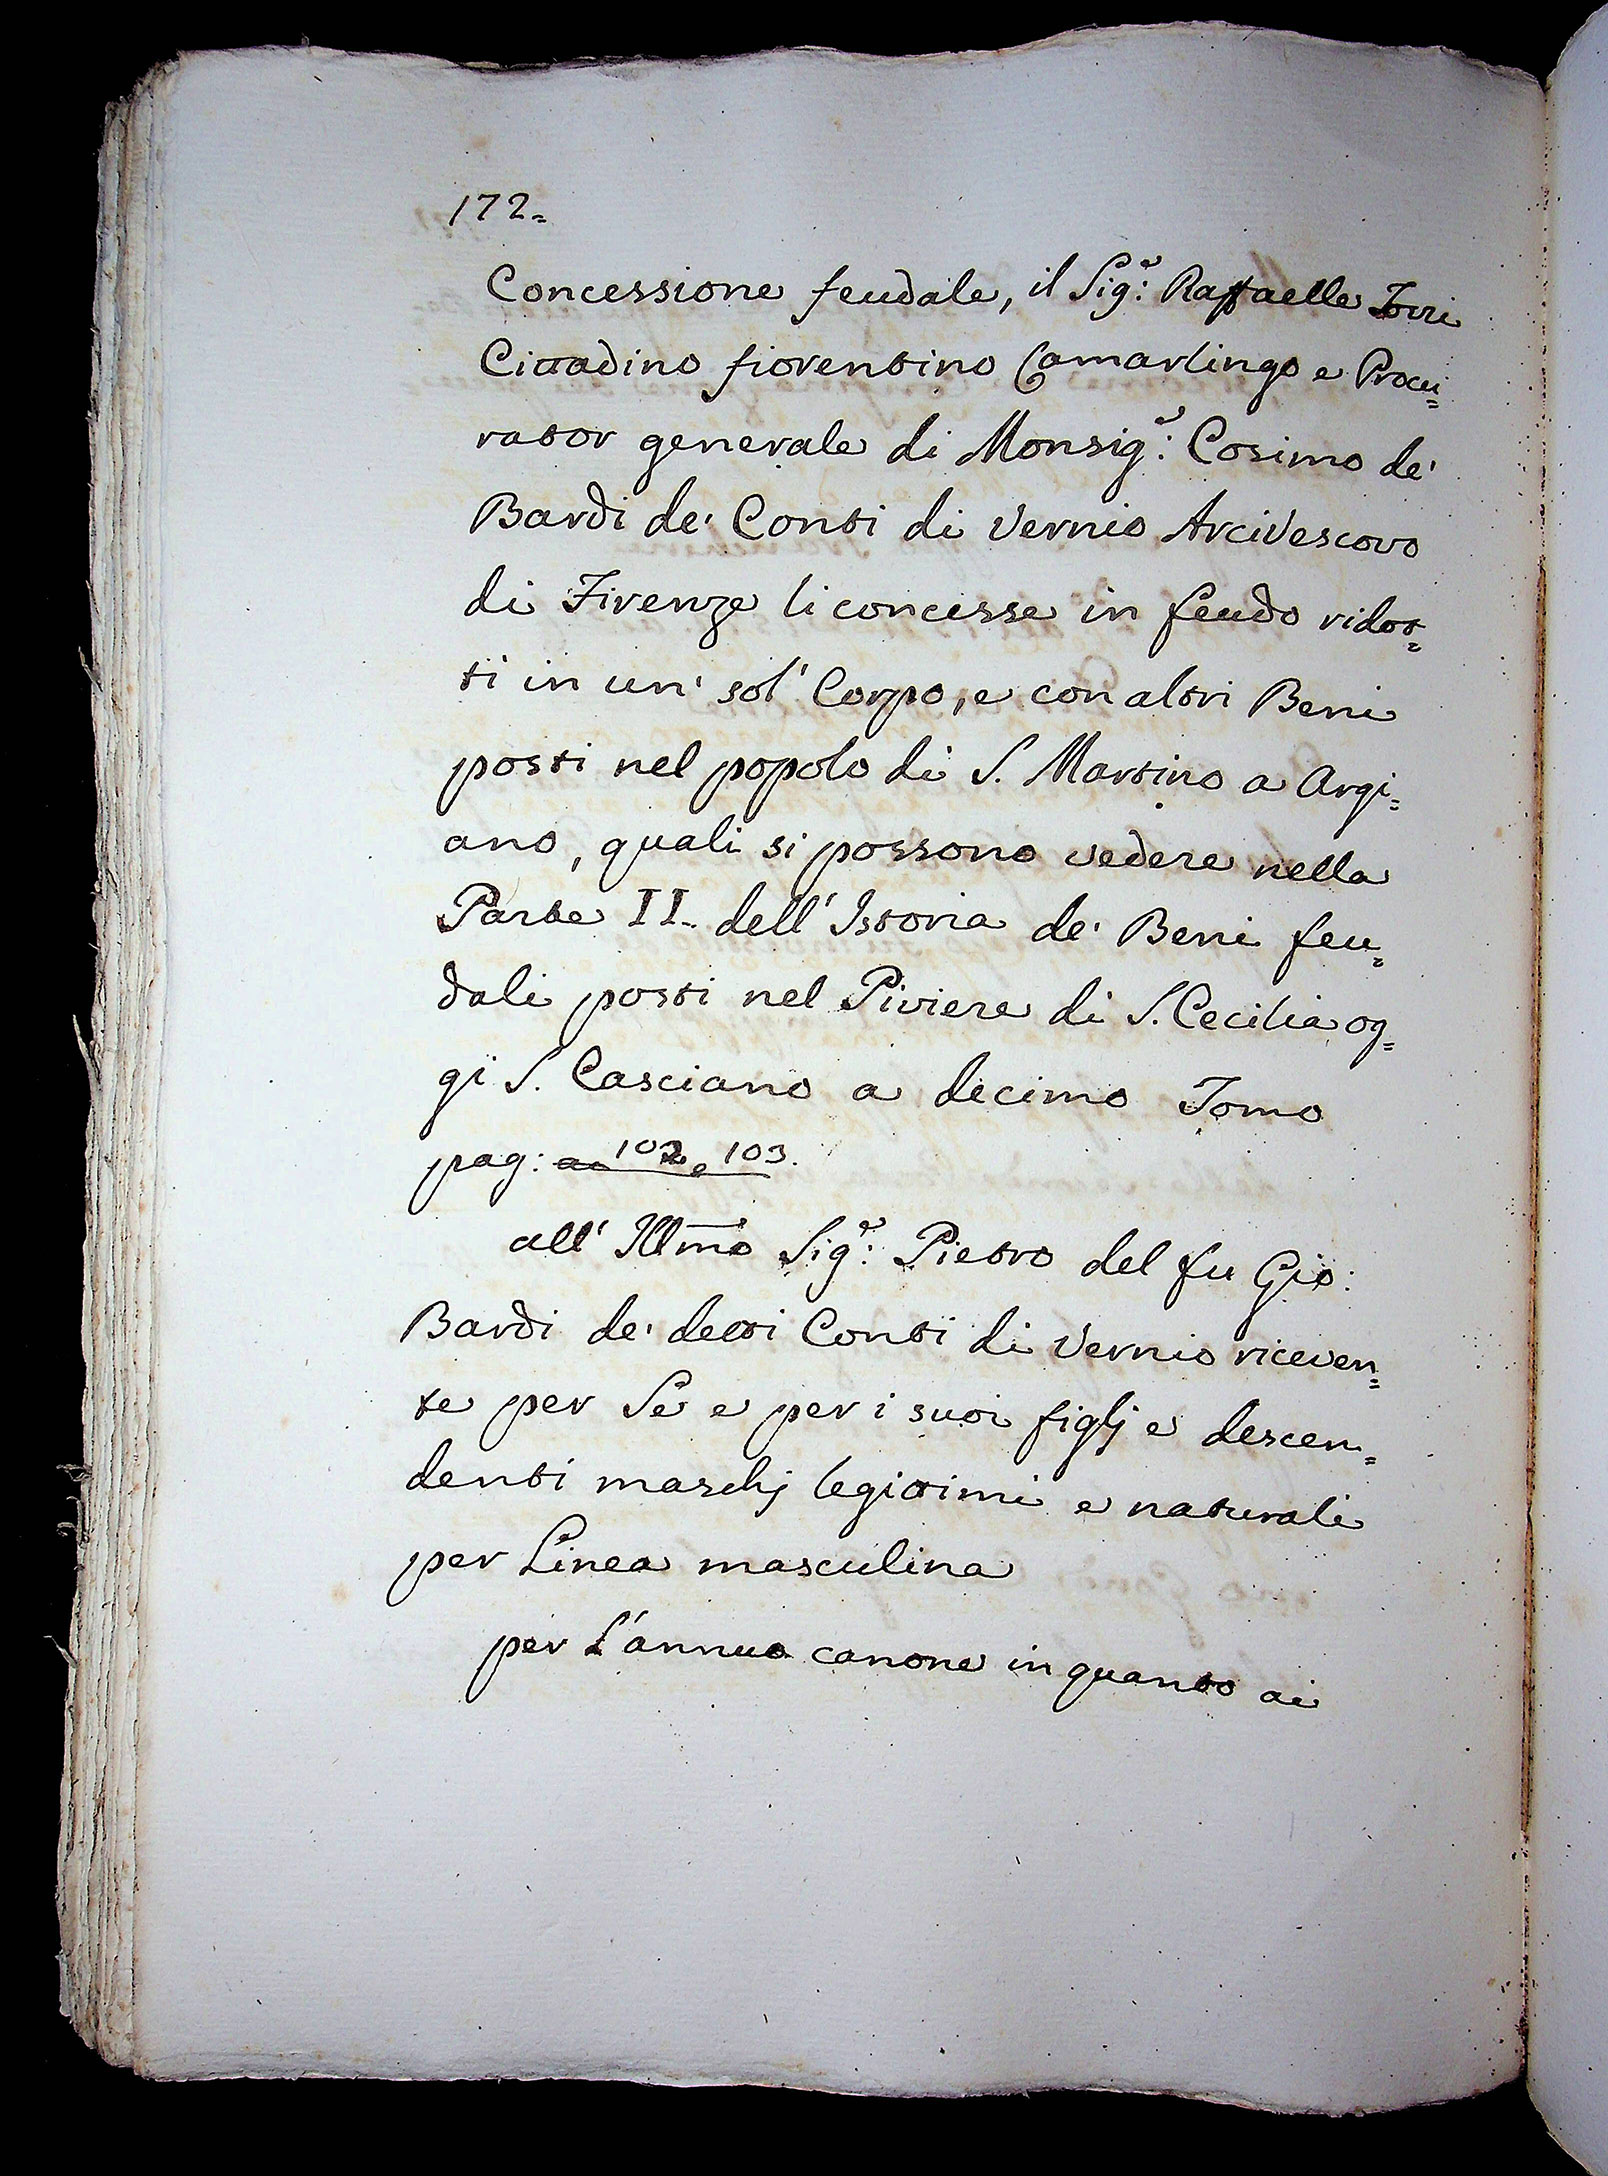 172=
Concessione feudale, il Sig.e: Raffaelle Torri
Cittadino fiorentino Camarlingo e Procu=
rator generale di Monsig.e: Cosimo de'
Bardi de' Conti di Vernio Arcivescovo
di Firenze li concesse in feudo ridot=
ti in un' sol' Corpo, e con altri Beni
posti nel popolo di S. Martino a Argi=
ano, quali si possono vedere nella
Parte II. dell' Istoria de' Beni feu=
dali posti nel Piviere di S. Cecilia og=
gi S. Casciano a decimo Tomo
pag: 102 e 103.
all' Illmo Sig.e: Pietro del fu Gio:
Bardi de' detti Conti di Vernio riceven=
te per Se e per i suoi figlj e descen=
denti maschj legittimi e naturali
per Linea masculina
per L'annuo canone in quanto ai